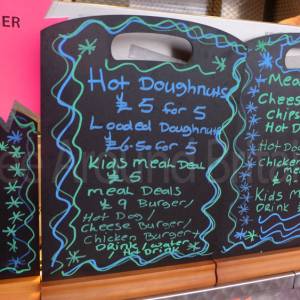 ER
Hot Doughnuts
£5 for 5
Loaded Doughnuts
£6.50 for 5
Kids meal Deal
£5
meal Deals
£9 Burger/
Hot Dog/
Cheese Burger/
Chicken Burger +
Drink / water /
Hot Drink
+Mea
Chees
chips
Hot
Hot D
chicken
meal
Kids m
Drink